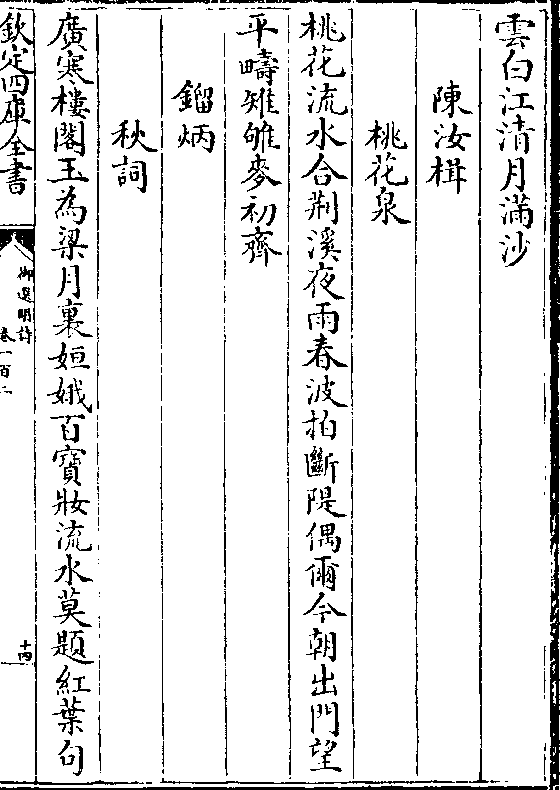 雲白江清月滿沙
陳汝楫
桃花泉
桃花流水合荆溪夜雨春波拍斷隄偶爾今朝出門望
平疇雉雊麥初齊
鎦炳
秋詞
廣寒樓閣玉為梁月裏姮娥百寶妝流水莫題紅葉句
欽定四庫全書
御選明詩
卷一百二
十四